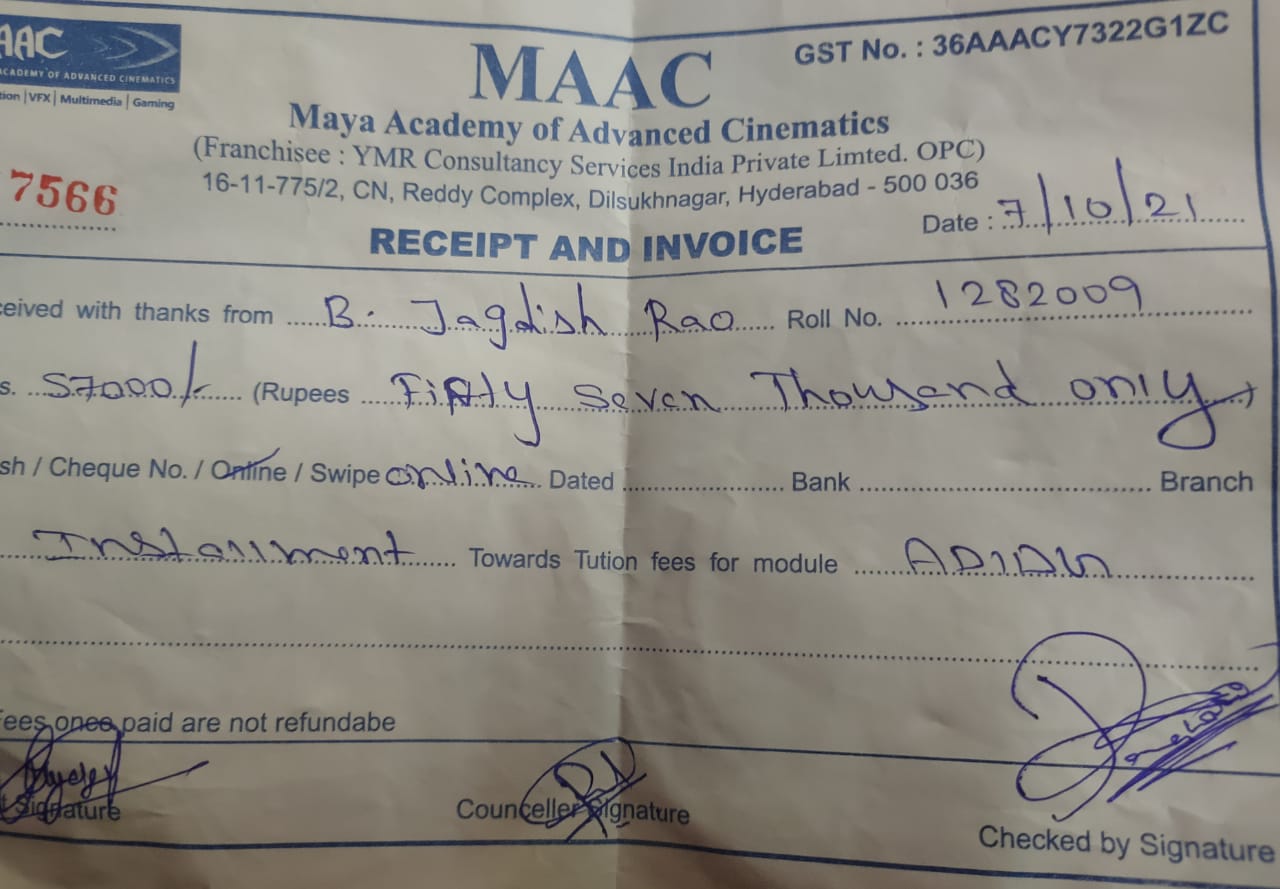 AAC
ACADEMY OF ADVANCED CINEMATICS
tion | VFX | Multimedia | Gaming
MAAC
GST No. : 36AAACY7322G1ZC
Maya Academy of Advanced Cinematics
(Franchisee : YMR Consultancy Services India Private Limted. OPC)
16-11-775/2, CN, Reddy Complex, Dilsukhnagar, Hyderabad - 500 036
7566
Date : 7/10/21
RECEIPT AND INVOICE
ceived with thanks from B. Jagdish Rao Roll No. 1282009
s. 57000/- (Rupees Fifty Seven Thousand only
sh / Cheque No. / Online / Swipe online Dated Bank Branch
Installment Towards Tution fees for module
fees once paid are not refundabe
Signature
Counceller Signature
Checked by Signature